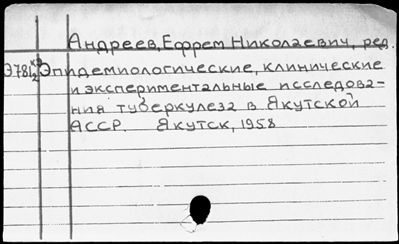 Андреев, Ефрем Николаевич, ред.
Э781 Эпидемиологические, клинические
и экспериментальные исследова-
ния туберкулеза в Якутской
АССР. Якутск, 1958